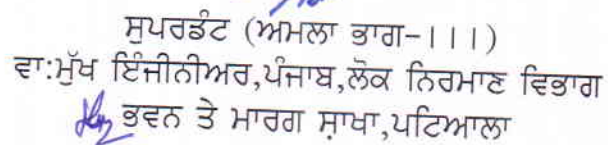 ਸੁਪਰਡੰਟ (ਅਮਲਾ ਭਾਗ-।।।)
ਵਾ:ਮੁੱਖ ਇੰਜੀਨੀਅਰ,ਪੰਜਾਬ,ਲੋਕ ਨਿਰਮਾਣ ਵਿਭਾਗ
ਭਵਨ ਤੇ ਮਾਰਗ ਸ਼ਾਖਾ,ਪਟਿਆਲਾ